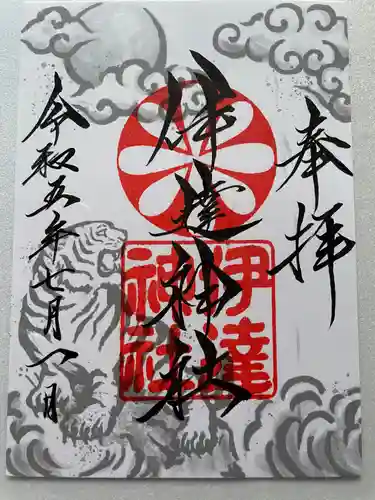 奉拝
伊達神社
伊達神社
令和五年七月八日